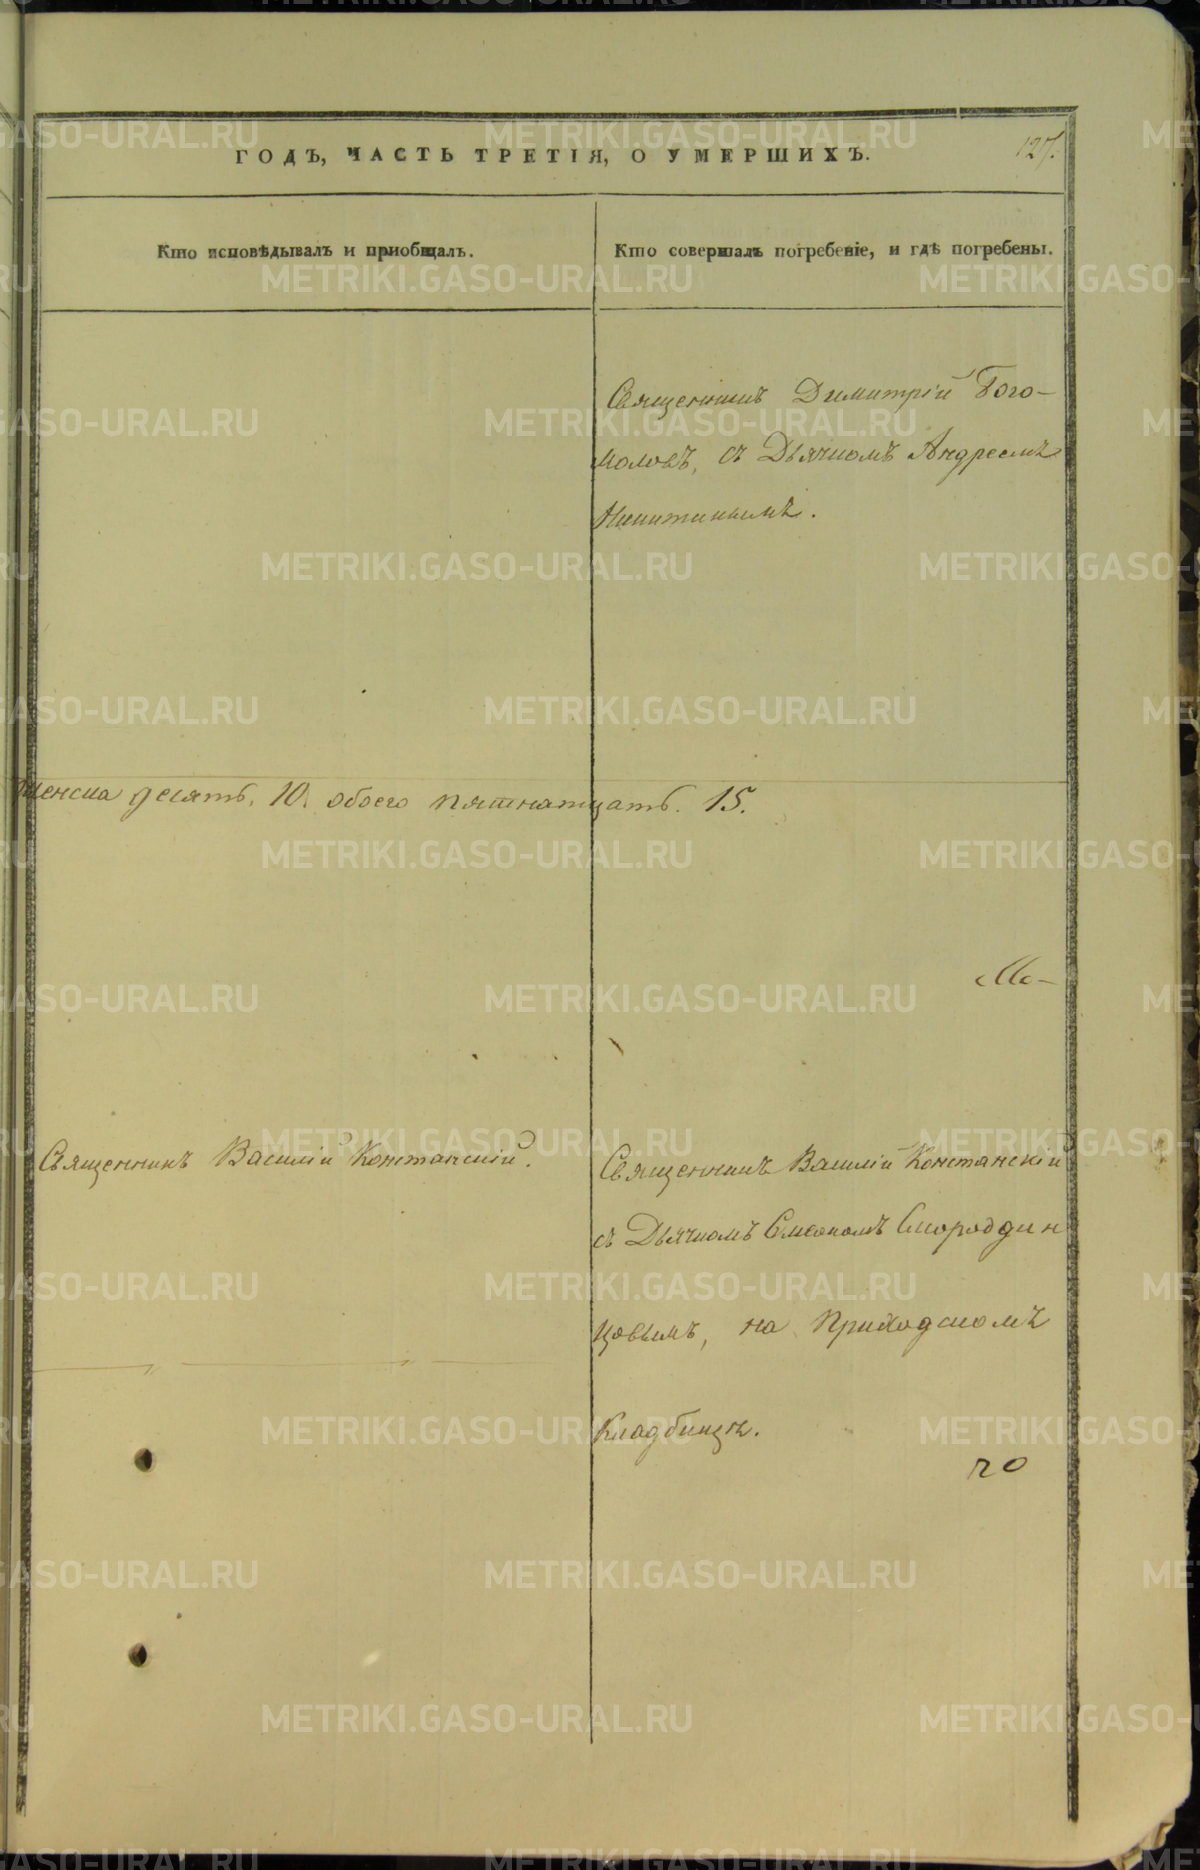 ГОДЪ, ЧАСТЬ ТРЕТІЯ, О УМЕРШИХЪ.
127.
Кто исповѣдывалъ и приобщалъ.
Кто совершалъ погребеніе, и гдѣ погребены.
Священникъ Димитрій Бого-
моловъ, съ Дьячкомъ Андреемъ
Никитинымъ.
женска десять. 10. обоего пятнатцать. 15.
Ме-
Священникъ Василій Констанскій.
Священникъ Василій Констанскій
съ Дьячкомъ Симеономъ Смородин
цовымъ, на приходскомъ
Кладбищѣ.
го
METRIKI.GASO-URAL.RU